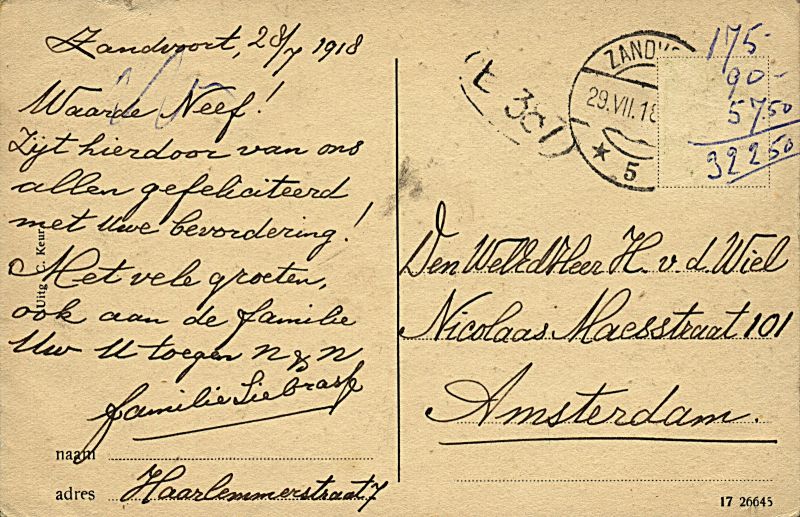 Zandvoort, 28/7 1918
Waarde Neef!
Zijt hierdoor van ons
allen gefeliciteerd
met Uwe bevordering!
Met vele groeten,
ook aan de familie
Uw U toegen n & n
familie Liebrasp
naam
adres Haarlemmerstraat 7
Uitg. C. Keur
ZANDV
29.VII.18
5
175-
90-
57.50
322 50
Den WelEdHeer H. v. d. Wiel
Nicolaas Maesstraat 101
Amsterdam.
17 26645